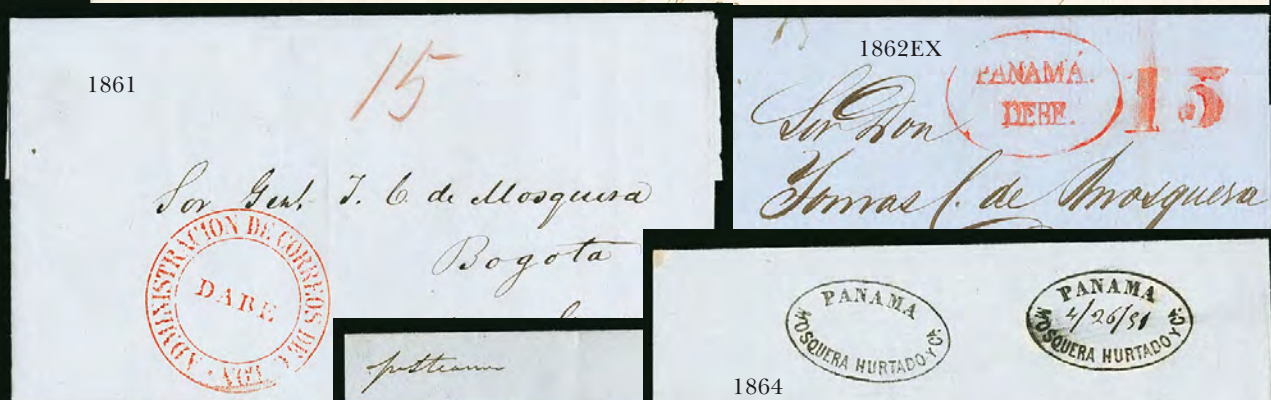 1861
15
Sor Genl. T. C. de Mosquera
Bogota
ADMINISTRACION DE CORREOS DE
DABE
1862EX
PANAMÁ.
DEBE.
15
Sor Don
Tomas C. de Mosquera
PANAMA
MOSQUERA HURTADO Y Ca.
PANAMA
4/26/51
MOSQUERA HURTADO Y Ca.
1864